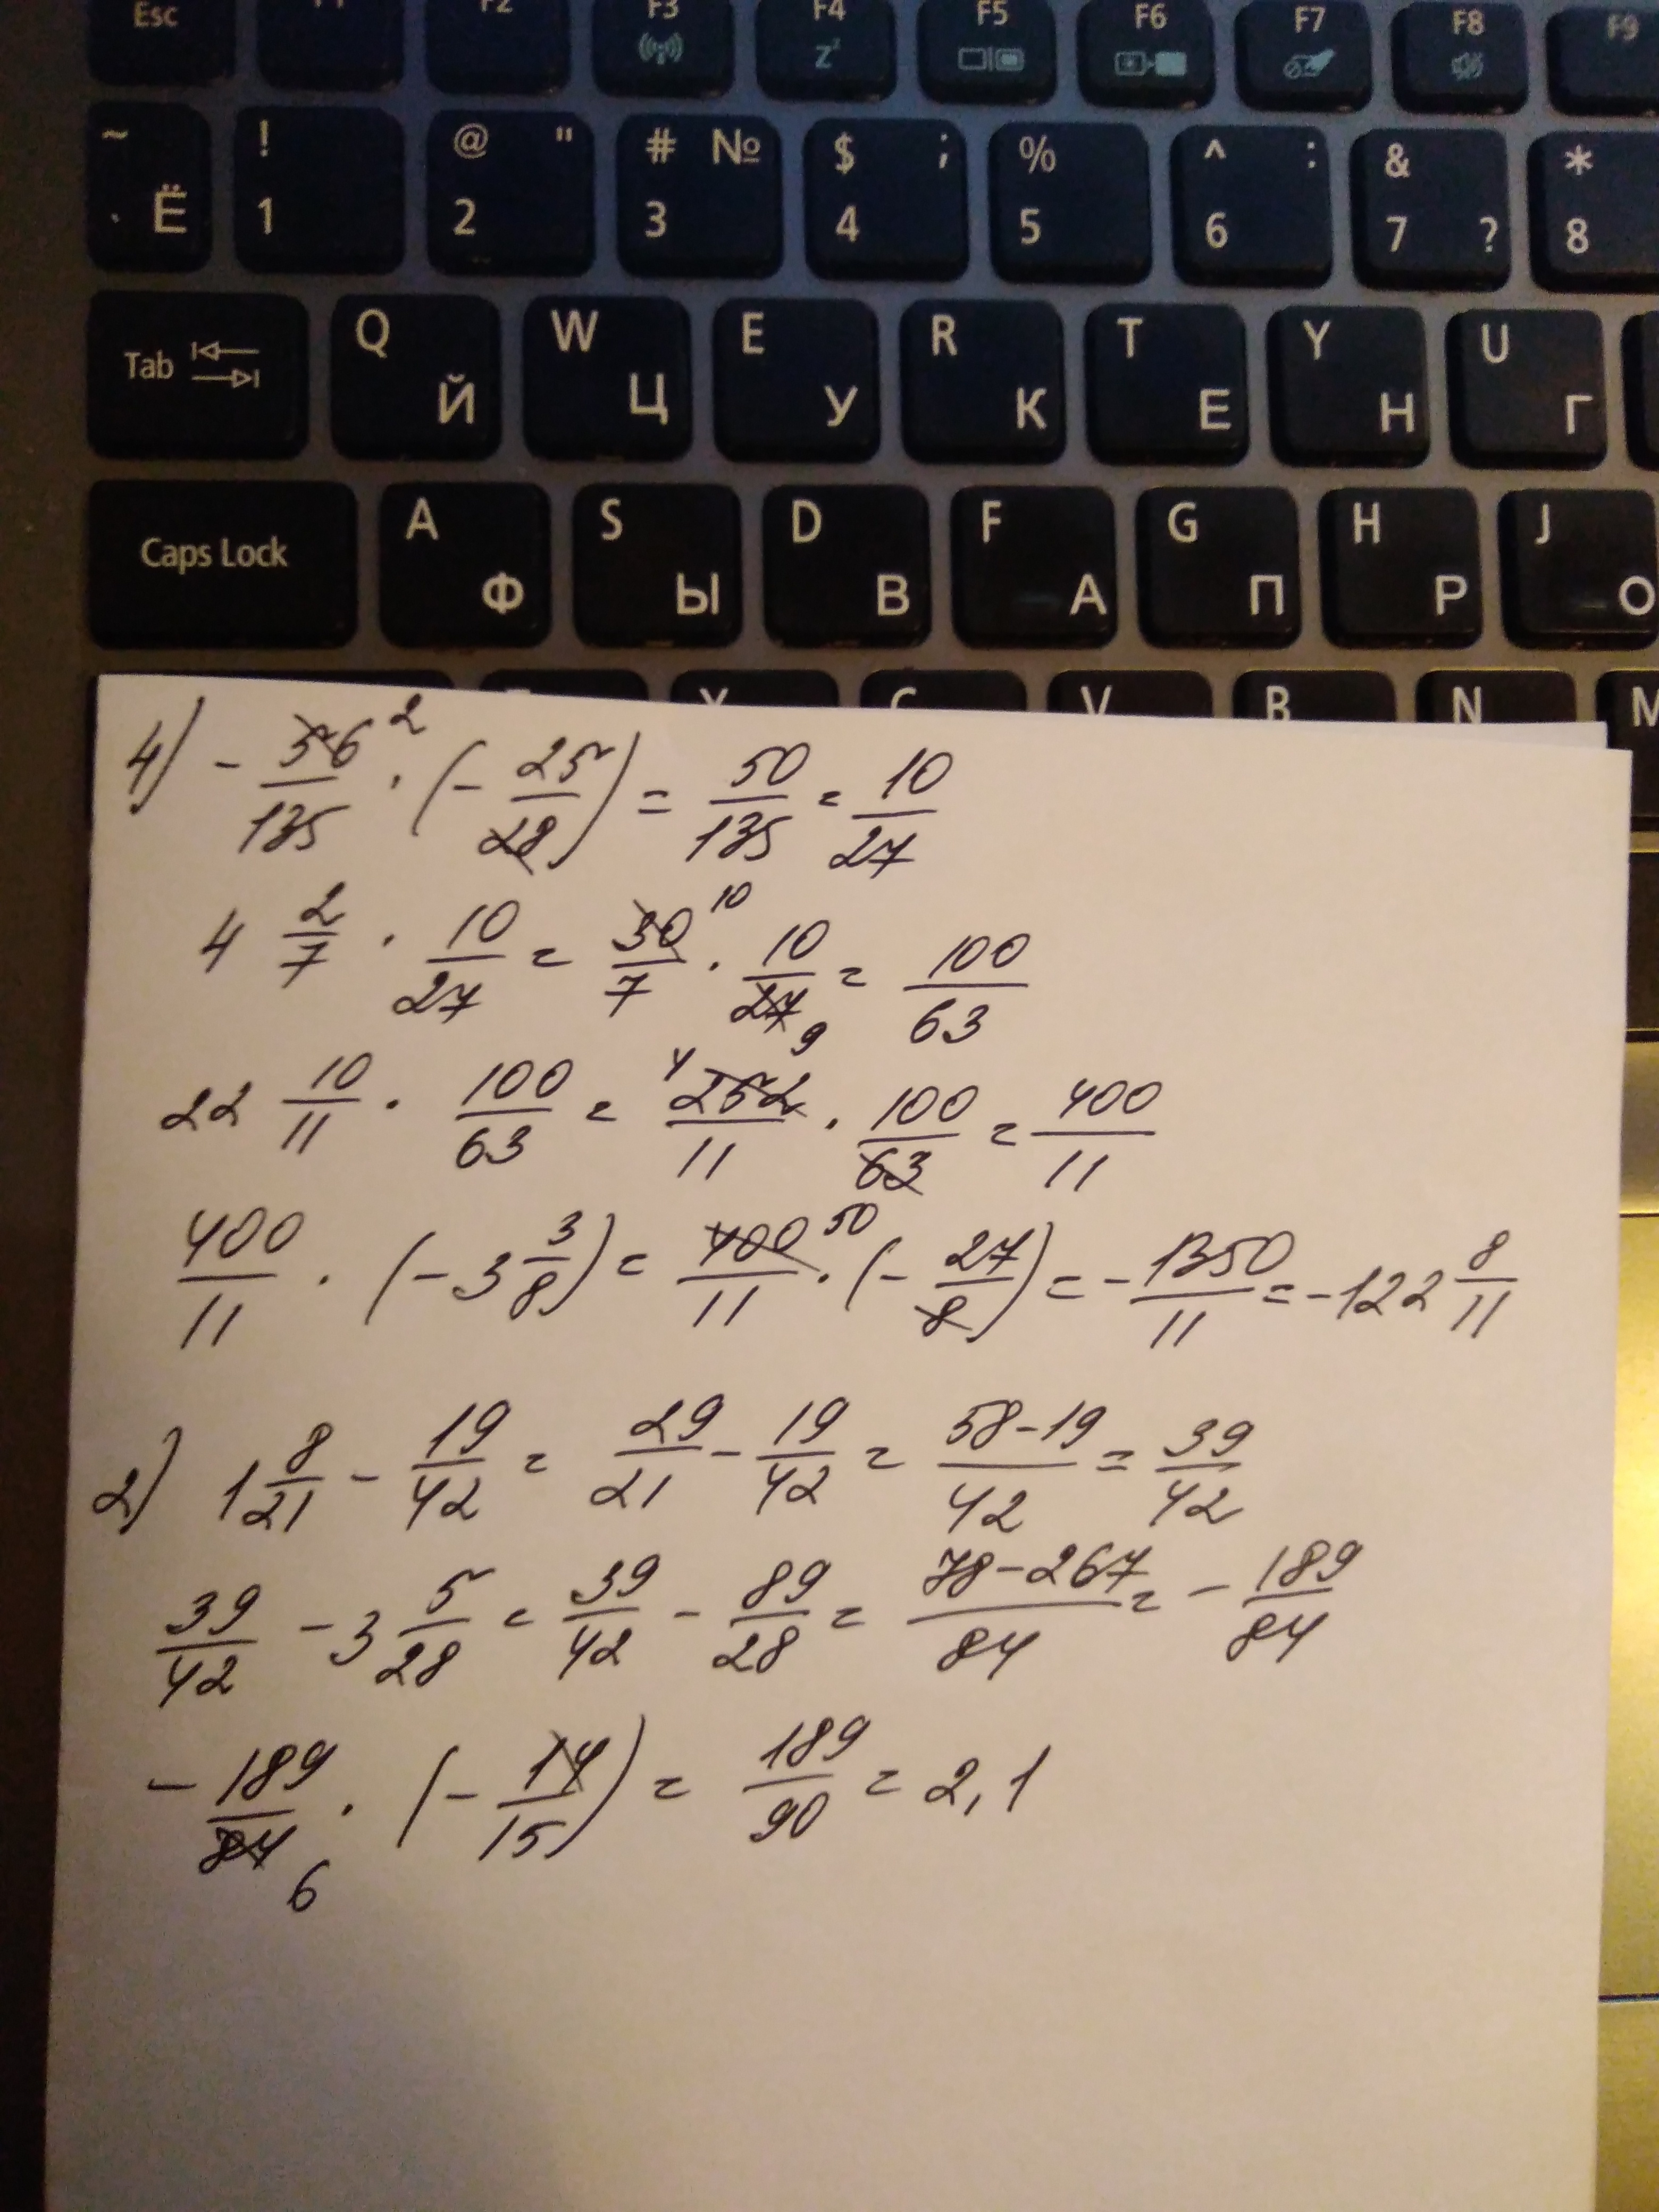 Esc F2 F3 F4 F5 F6 F7 F8 F9
Z
~ ! @ " # № $ ; % ^ : & *
Ё 1 2 3 4 5 6 7 ? 8
Tab Q W E R T Y U
Й Ц У К Е Н Г
Caps Lock A S D F G H J
Ф Ы В А П Р О
C V B N M
4) - 56/135 2 · (- 25/28) = 50/135 = 10/27
4 2/7 · 10/27 = 30/7 10 · 10/27 9 = 100/63
22 10/11 · 100/63 = 4 252/11 · 100/63 = 400/11
400/11 · (-3 3/8) = 400/11 50 · (- 27/8) = - 1350/11 = -122 8/11
2) 1 8/21 - 19/42 = 29/21 - 19/42 = 58-19/42 = 39/42
39/42 - 3 5/28 = 39/42 - 89/28 = 78-267/84 = - 189/84
- 189/84 6 · (- 14/15) = 189/90 = 2,1